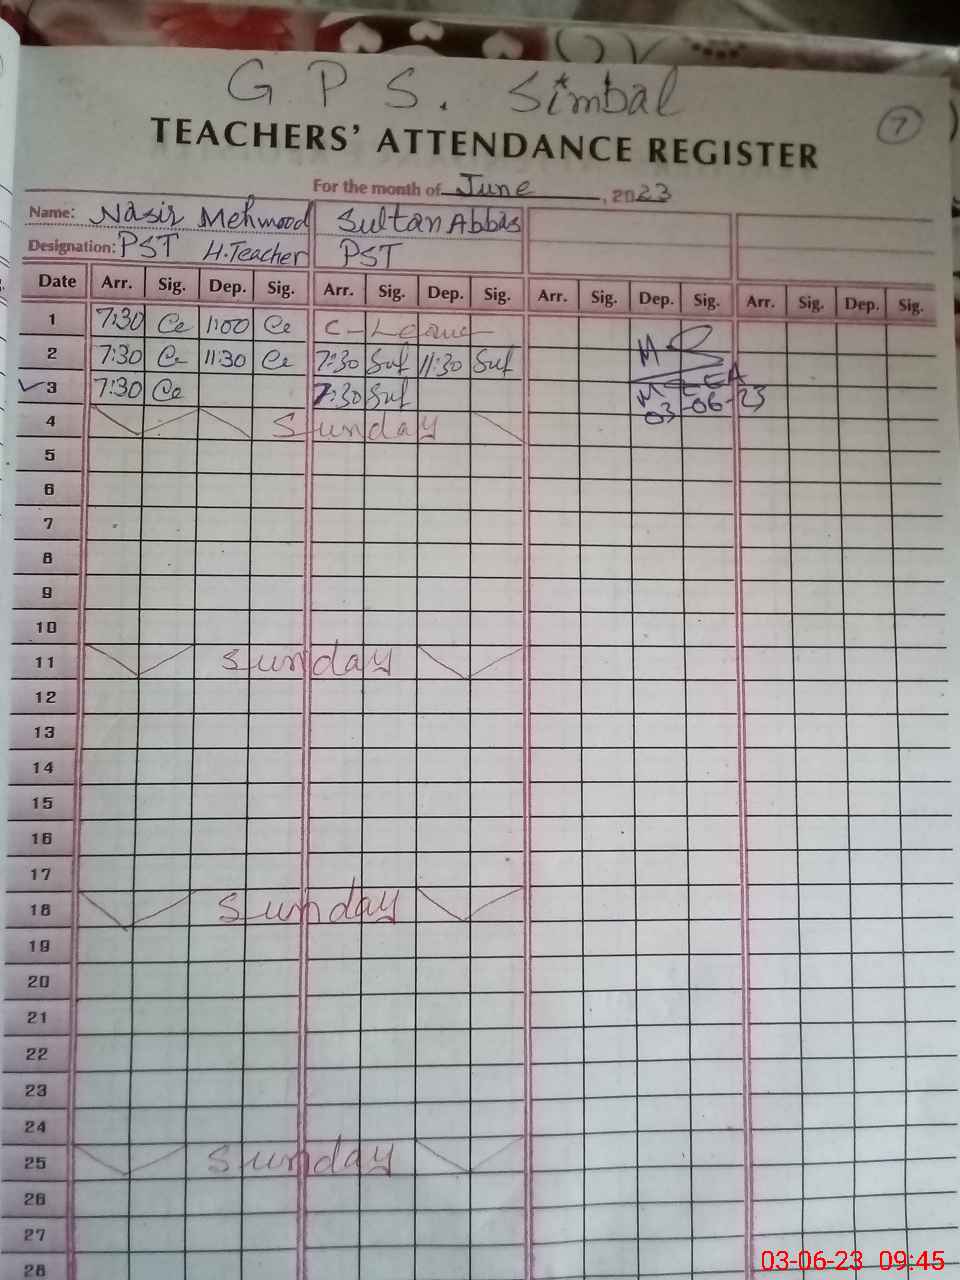 G P S. Simbal
7
TEACHERS' ATTENDANCE REGISTER
For the month of June, 2023
Name: Nasir Mehmood Sultan Abbas
Designation: PST H.Teacher PST
Date Arr. Sig. Dep. Sig. Arr. Sig. Dep. Sig. Arr. Sig. Dep. Sig. Arr. Sig. Dep. Sig.
1 7:30 Ce 1:00 Ce C-Leave
2 7:30 Ce 11:30 Ce 7:30 Suf 11:30 Suf
3 7:30 Ce 7:30 Suf MEEA
03-06-23
4 Sunday
5
6
7
8
9
10
11 Sunday
12
13
14
15
16
17
18 Sunday
19
20
21
22
23
24
25 Sunday
26
27
28
03-06-23 09:45